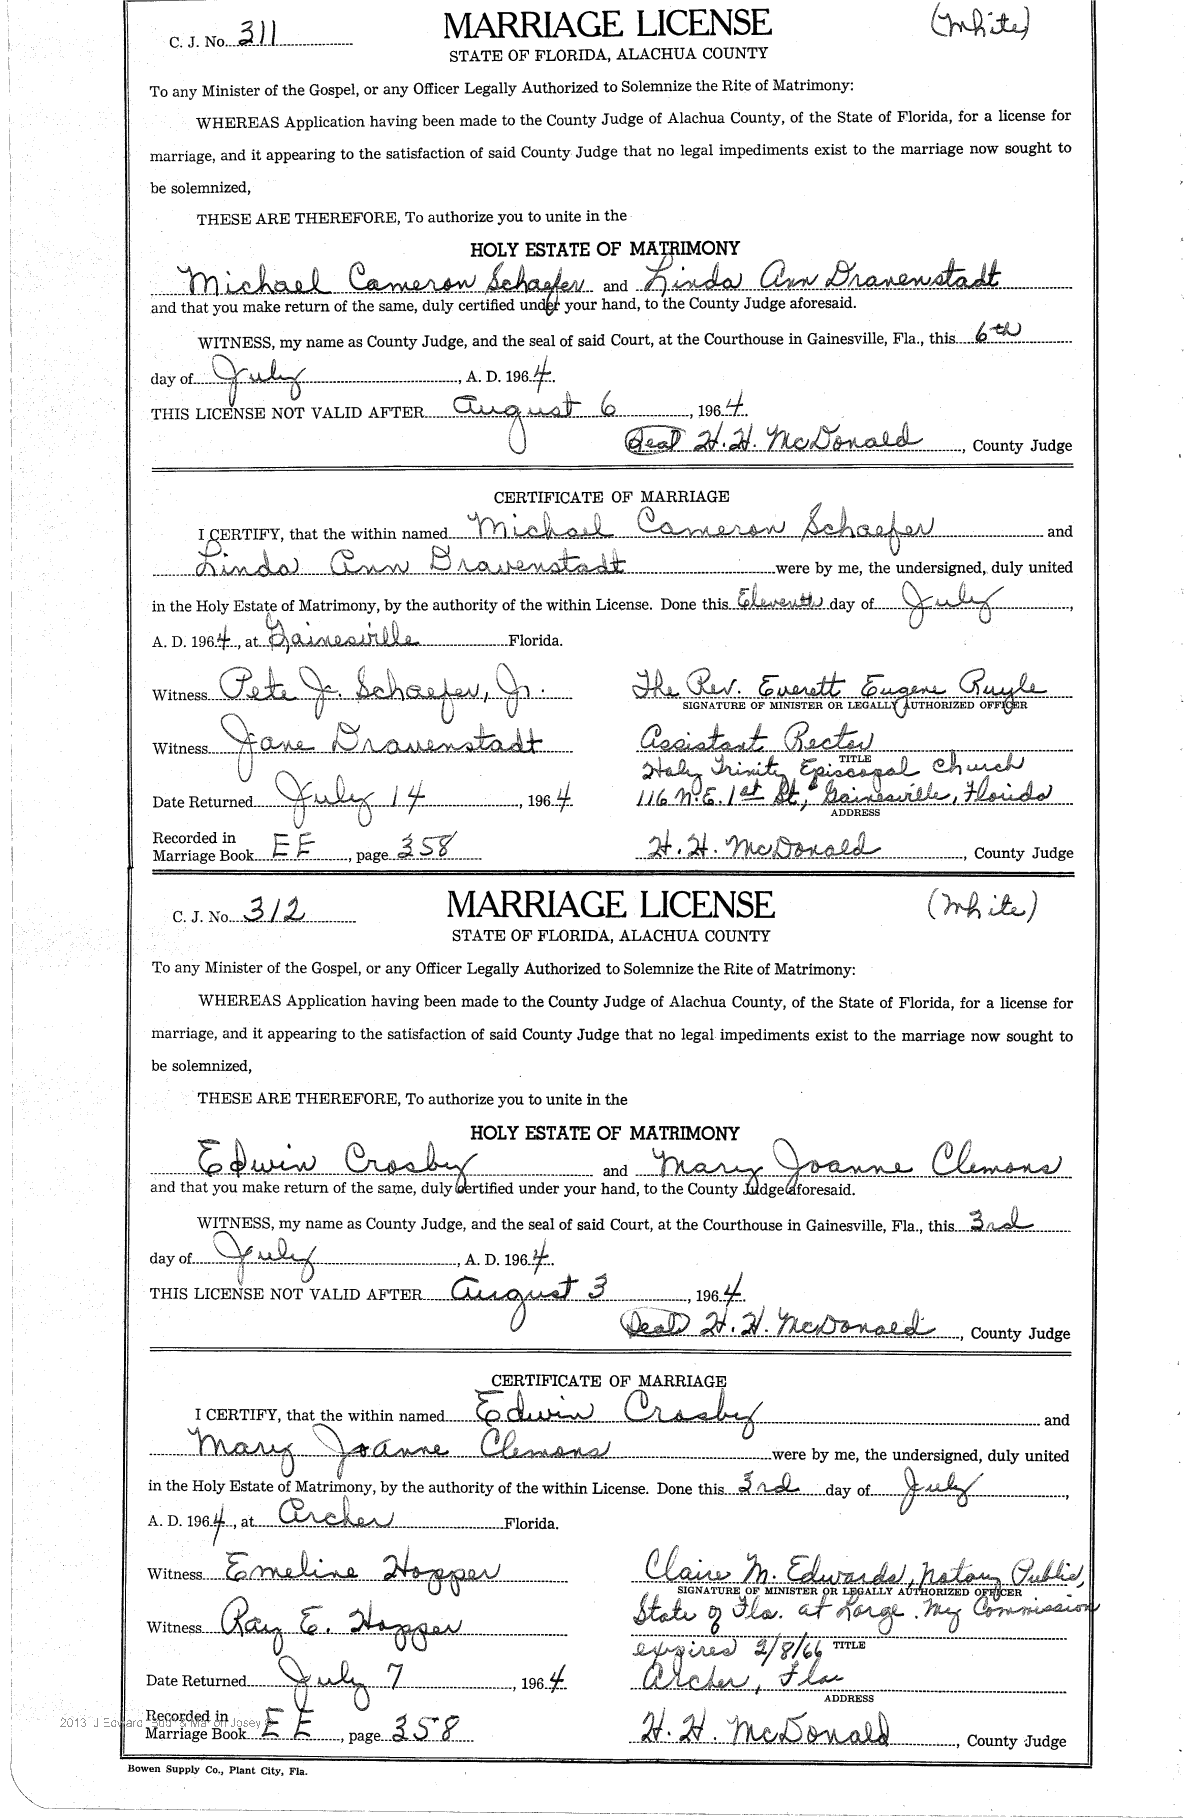 C. J. No. 311
MARRIAGE LICENSE
(White)
STATE OF FLORIDA, ALACHUA COUNTY
To any Minister of the Gospel, or any Officer Legally Authorized to Solemnize the Rite of Matrimony:
WHEREAS Application having been made to the County Judge of Alachua County, of the State of Florida, for a license for
marriage, and it appearing to the satisfaction of said County Judge that no legal impediments exist to the marriage now sought to
be solemnized,
THESE ARE THEREFORE, To authorize you to unite in the
HOLY ESTATE OF MATRIMONY
Michael Cameron Schaefer and Linda Ann Dravenstadt
and that you make return of the same, duly certified under your hand, to the County Judge aforesaid.
WITNESS, my name as County Judge, and the seal of said Court, at the Courthouse in Gainesville, Fla., this 6th
day of July, A. D. 1964.
THIS LICENSE NOT VALID AFTER August 6, 1964.
(Seal) H. H. McDonald, County Judge
CERTIFICATE OF MARRIAGE
I CERTIFY, that the within named Michael Cameron Schaefer and
Linda Ann Dravenstadt were by me, the undersigned, duly united
in the Holy Estate of Matrimony, by the authority of the within License. Done this Eleventh day of July,
A. D. 1964, at Gainesville Florida.
Witness Pete J. Schaefer, Jr. The Rev. Everett Eugene Ruyle
SIGNATURE OF MINISTER OR LEGALLY AUTHORIZED OFFICER
Witness Jane Dravenstadt Assistant Rector
TITLE
Holy Trinity Episcopal Church
Date Returned July 14, 1964 116 N.E. 1st St., Gainesville, Florida
ADDRESS
Recorded in
Marriage Book EE, page 358 H. H. McDonald, County Judge
C. J. No. 312
MARRIAGE LICENSE
(White)
STATE OF FLORIDA, ALACHUA COUNTY
To any Minister of the Gospel, or any Officer Legally Authorized to Solemnize the Rite of Matrimony:
WHEREAS Application having been made to the County Judge of Alachua County, of the State of Florida, for a license for
marriage, and it appearing to the satisfaction of said County Judge that no legal impediments exist to the marriage now sought to
be solemnized,
THESE ARE THEREFORE, To authorize you to unite in the
HOLY ESTATE OF MATRIMONY
Edwin Crosby and Mary Joanne Clemons
and that you make return of the same, duly certified under your hand, to the County Judge aforesaid.
WITNESS, my name as County Judge, and the seal of said Court, at the Courthouse in Gainesville, Fla., this 3rd
day of July, A. D. 1964.
THIS LICENSE NOT VALID AFTER August 3, 1964.
(Seal) H. H. McDonald, County Judge
CERTIFICATE OF MARRIAGE
I CERTIFY, that the within named Edwin Crosby and
Mary Joanne Clemons were by me, the undersigned, duly united
in the Holy Estate of Matrimony, by the authority of the within License. Done this 3rd day of July,
A. D. 1964, at Archer Florida.
Witness Emeline Hopper Claire M. Edwards, Notary Public,
SIGNATURE OF MINISTER OR LEGALLY AUTHORIZED OFFICER
Witness Ray E. Hopper State of Fla. at Large. My Commission
expires 2/8/66 TITLE
Date Returned July 7, 1964 Archer, Fla
ADDRESS
Recorded in
Marriage Book EE, page 358 H. H. McDonald, County Judge
Bowen Supply Co., Plant City, Fla.